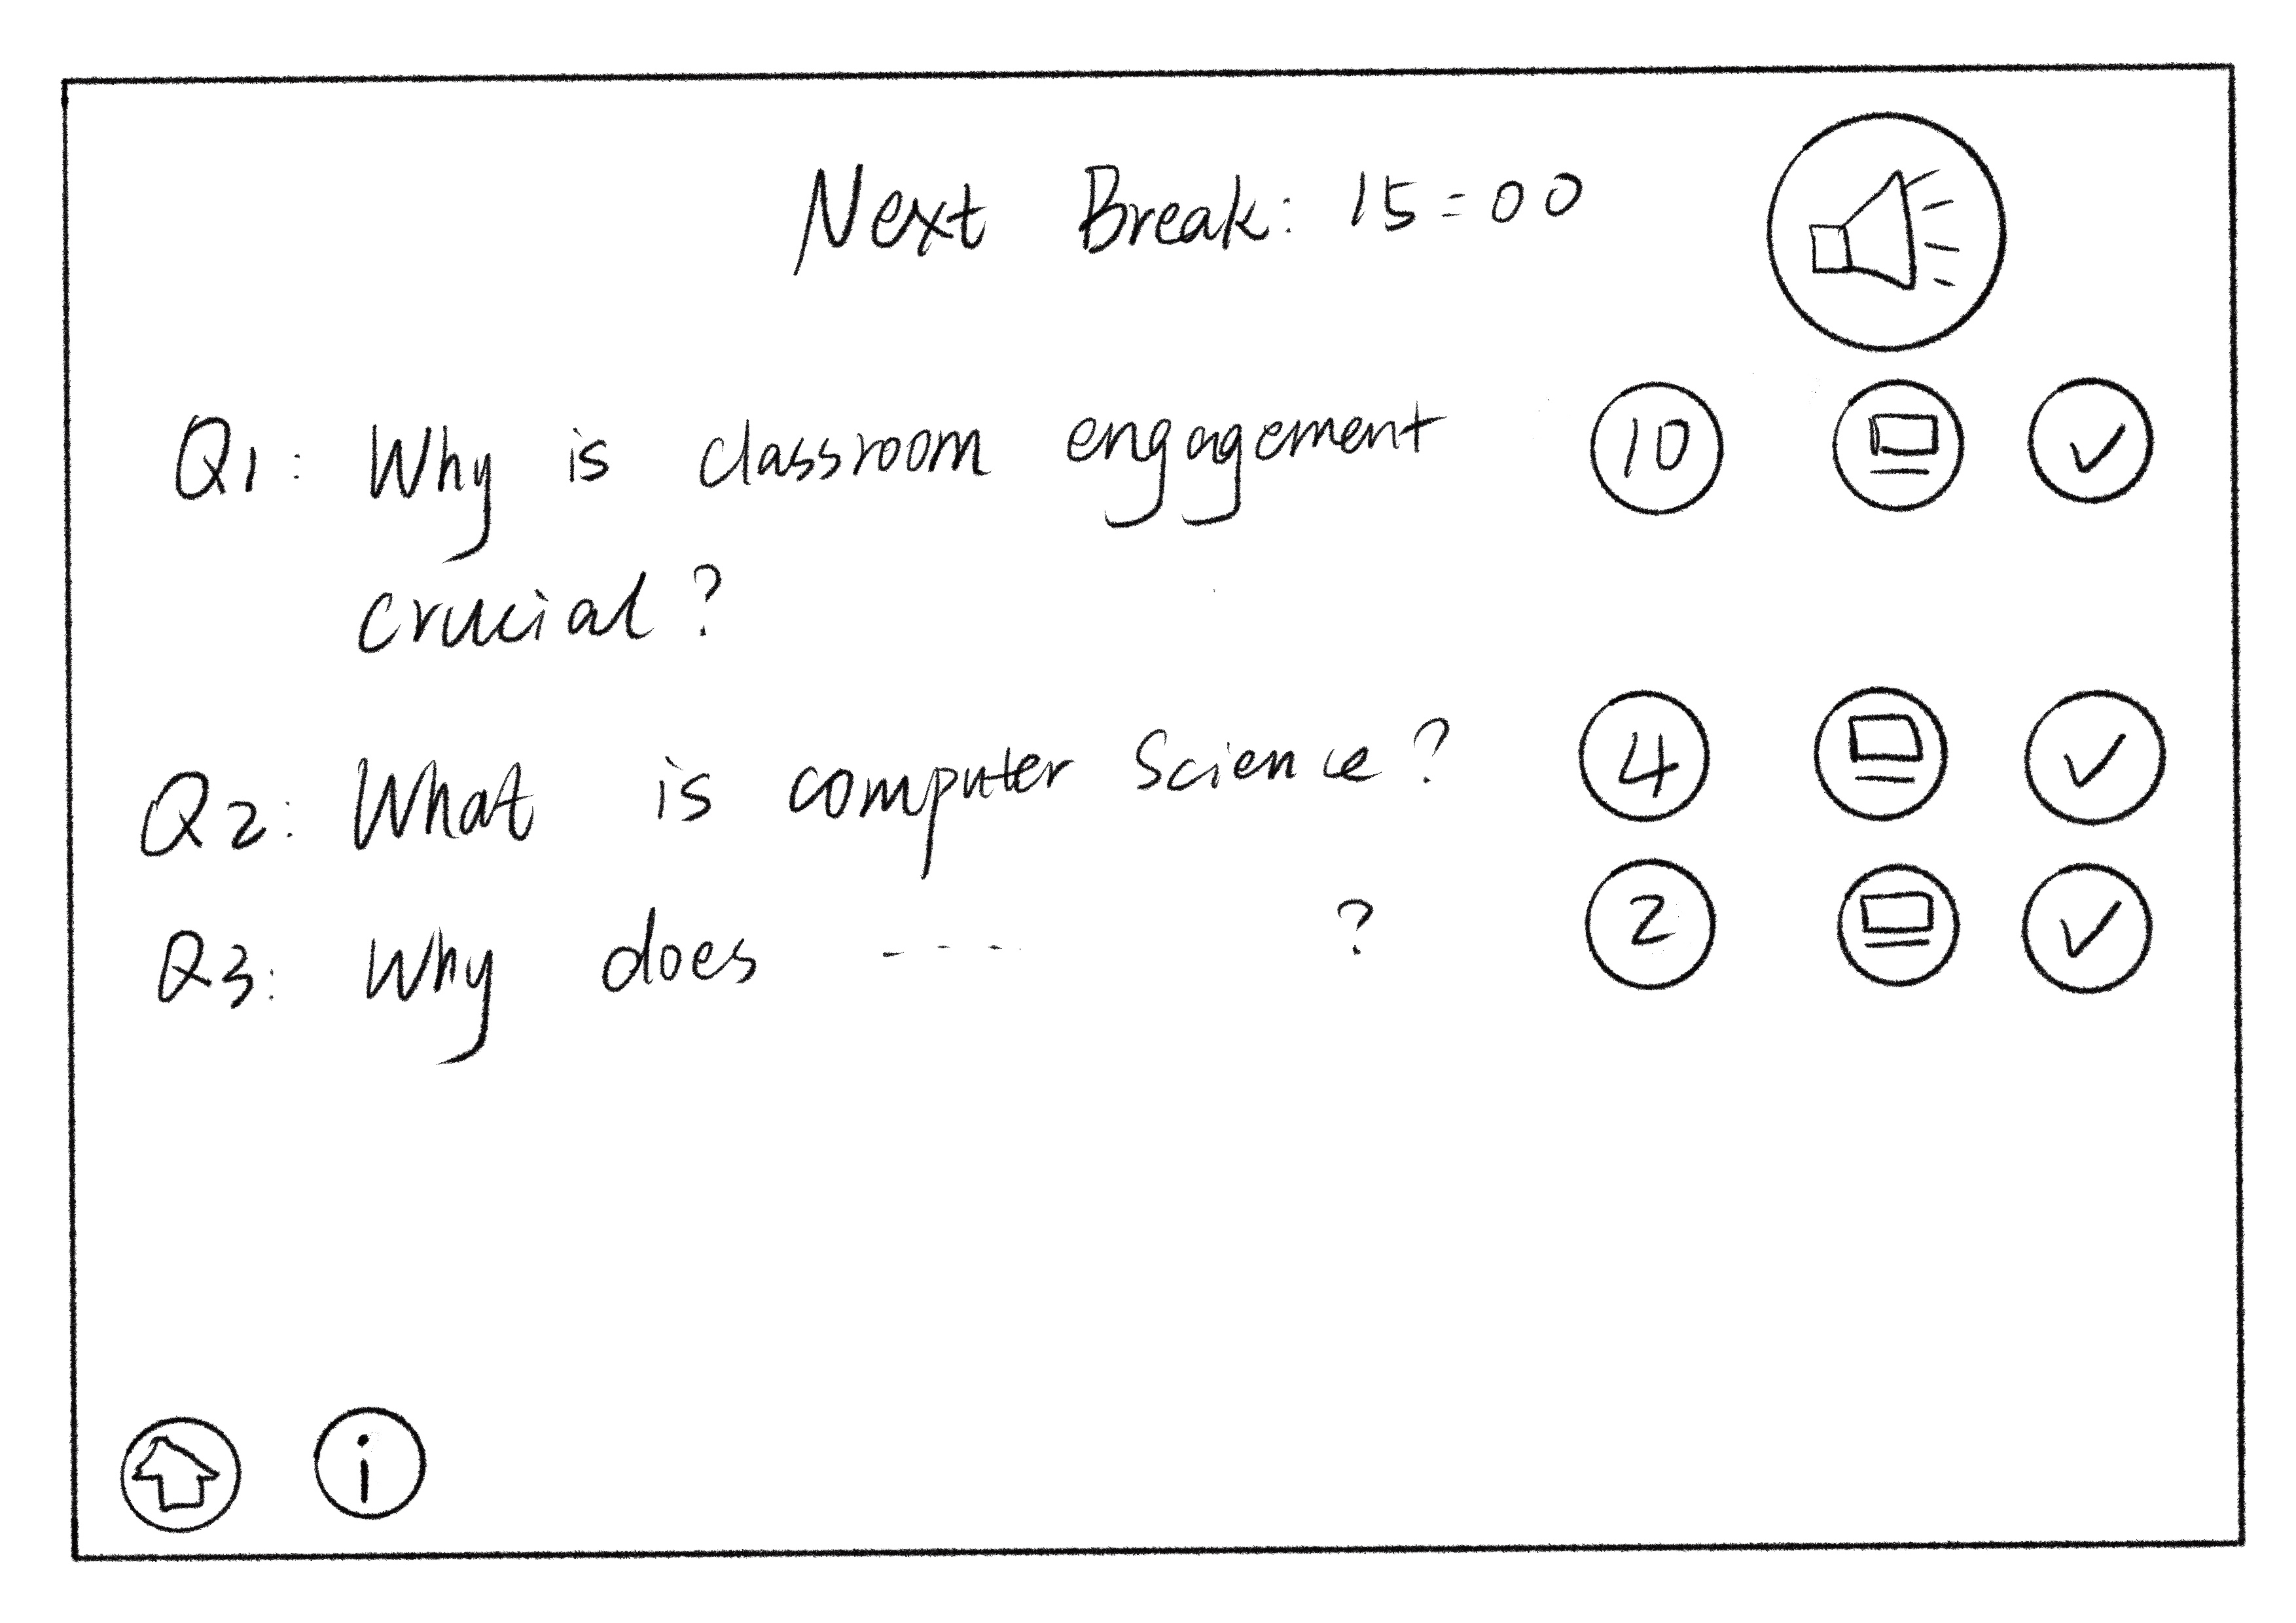 Next Break: 15:00
Q1: Why is classroom engagement 10
crucial?
Q2: What is computer Science? 4
Q3: Why does ---- ? 2
i